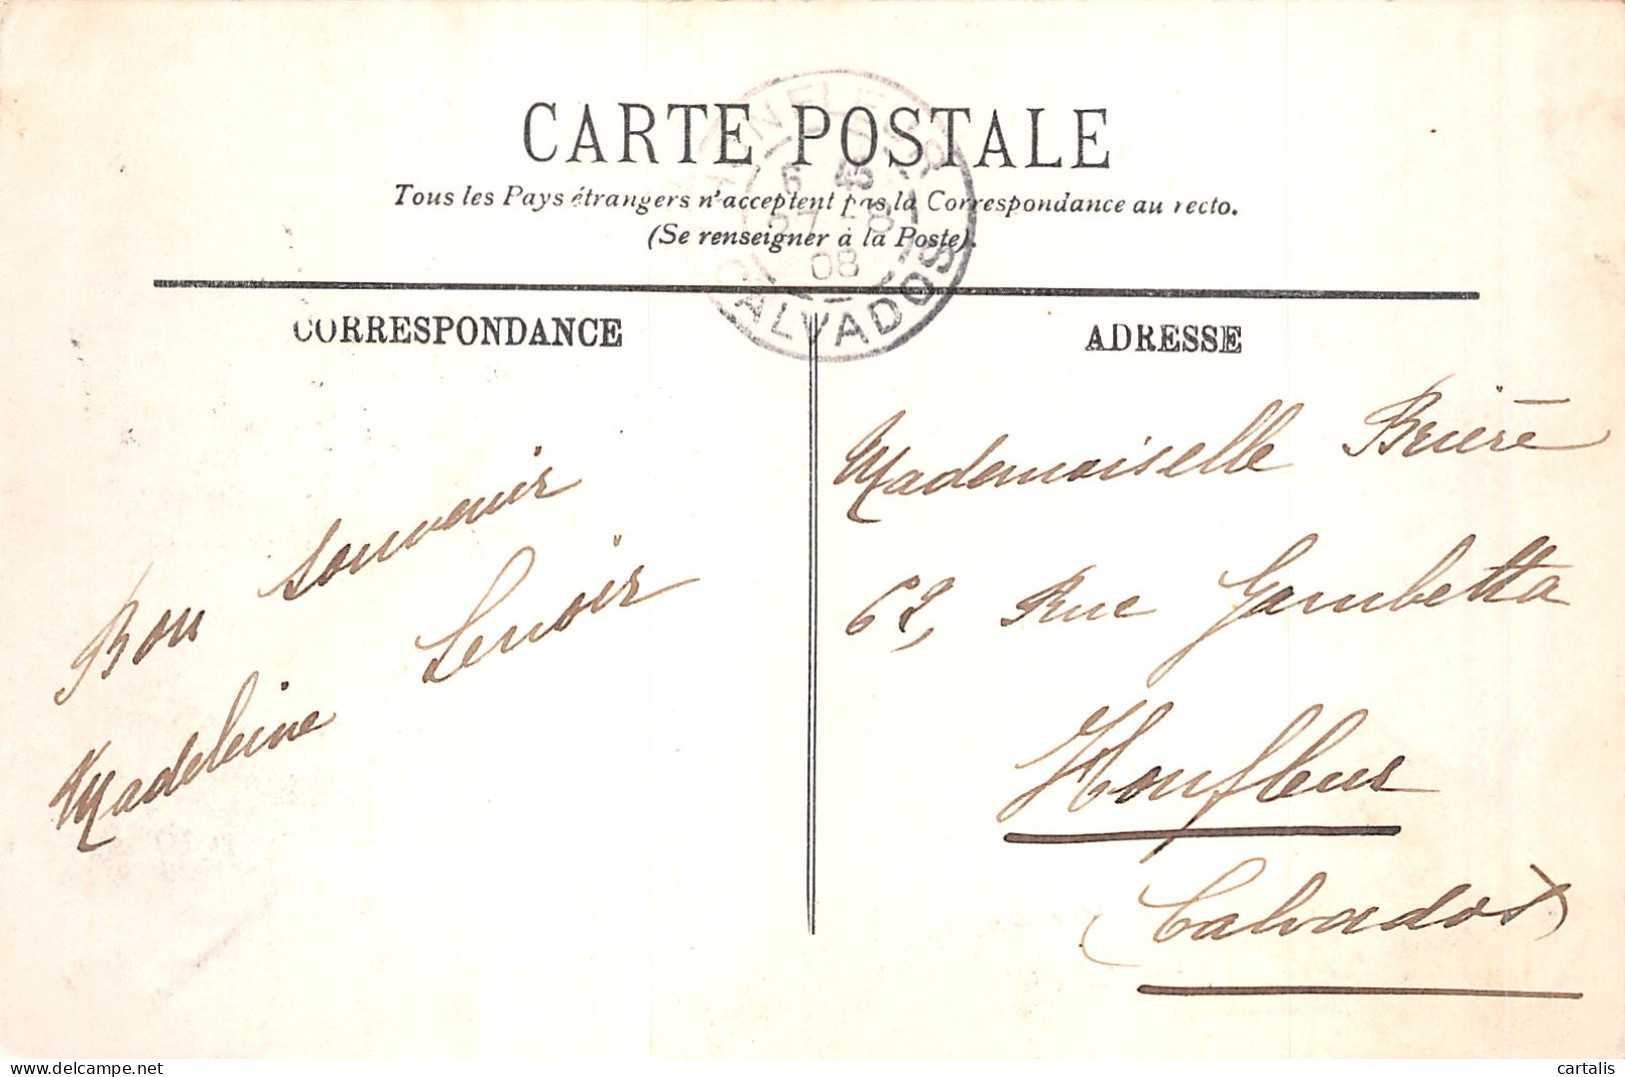 CARTE POSTALE
Tous les Pays étrangers n'acceptent pas la Correspondance au recto.
(Se renseigner à la Poste).
6 45
27 - 8
08
CALVADOS
CORRESPONDANCE
ADRESSE
Bon souvenir
Madeleine Lenoir
Mademoiselle Brière
62, Rue Gambetta
Honfleur
(Calvados)
delcampe.net
cartalis